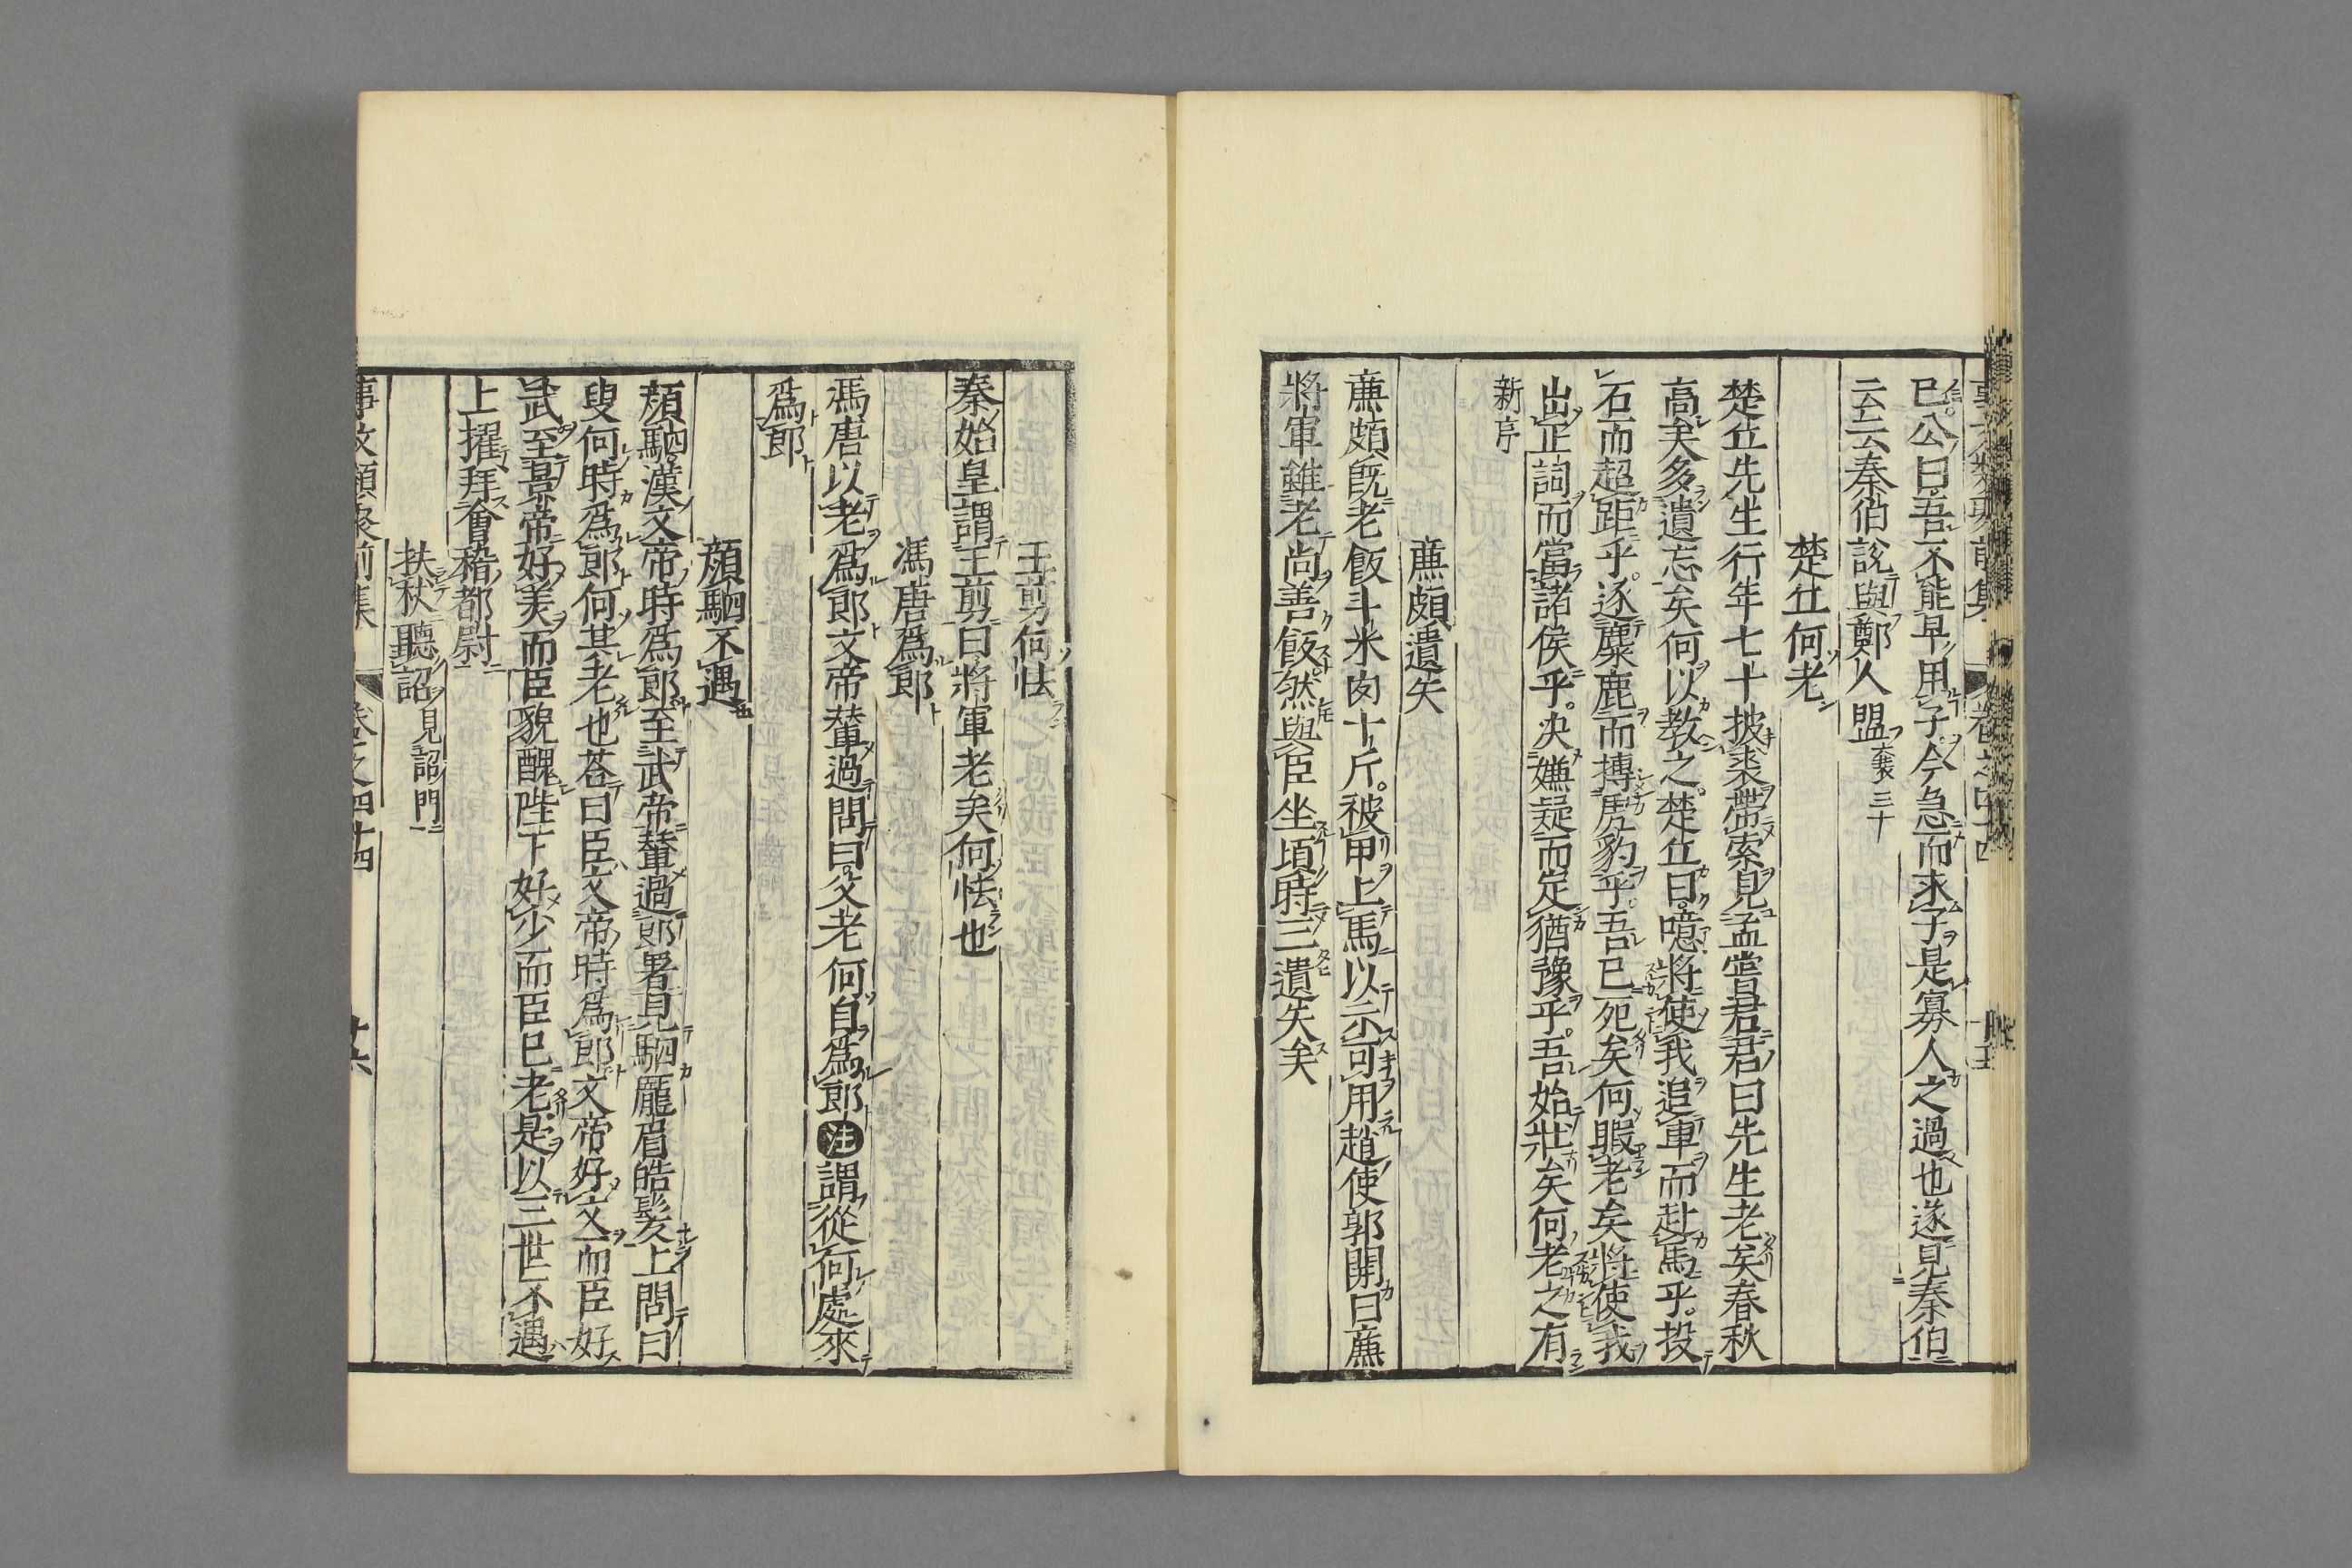 已公曰吾不能早用子今急而求子是寡人之過也遂見秦伯
云云秦伯說與鄭人盟襄三十
楚丘何老
楚丘先生行年七十披裘帶索見孟嘗君君曰先生老矣春秋
高矣多遺忘矣何以教之楚丘曰噫將使我追車而赴馬乎投
石而超距乎逐麋鹿而搏虎豹乎吾已死矣何暇老矣將使我
出正詞而當諸侯乎决嫌疑而定猶豫乎吾始壯矣何老之有
新序
廉頗遺矢
廉頗既老飯斗米肉十斤被甲上馬以示可用趙使郭開曰廉
將軍雖老尚善飯然與臣坐頃時三遺矢矣
王剪何怯
秦始皇謂王剪曰將軍老矣何怯也
馮唐爲郎
馮唐以老爲郎文帝輦過問曰父老何自爲郎注謂從何處來
爲郎
顔駟不遇
顔駟漢文帝時爲郎至武帝輦過郎署見駟龐眉皓髮上問曰
叟何時爲郎何其老也荅曰臣文帝時爲郎文帝好文而臣好
武至景帝好美而臣貌醜陛下好少而臣已老是以三世不遇
上擢拜會稽都尉
扶杖聽詔見詔門
事文類聚前集 卷之四十四 十六